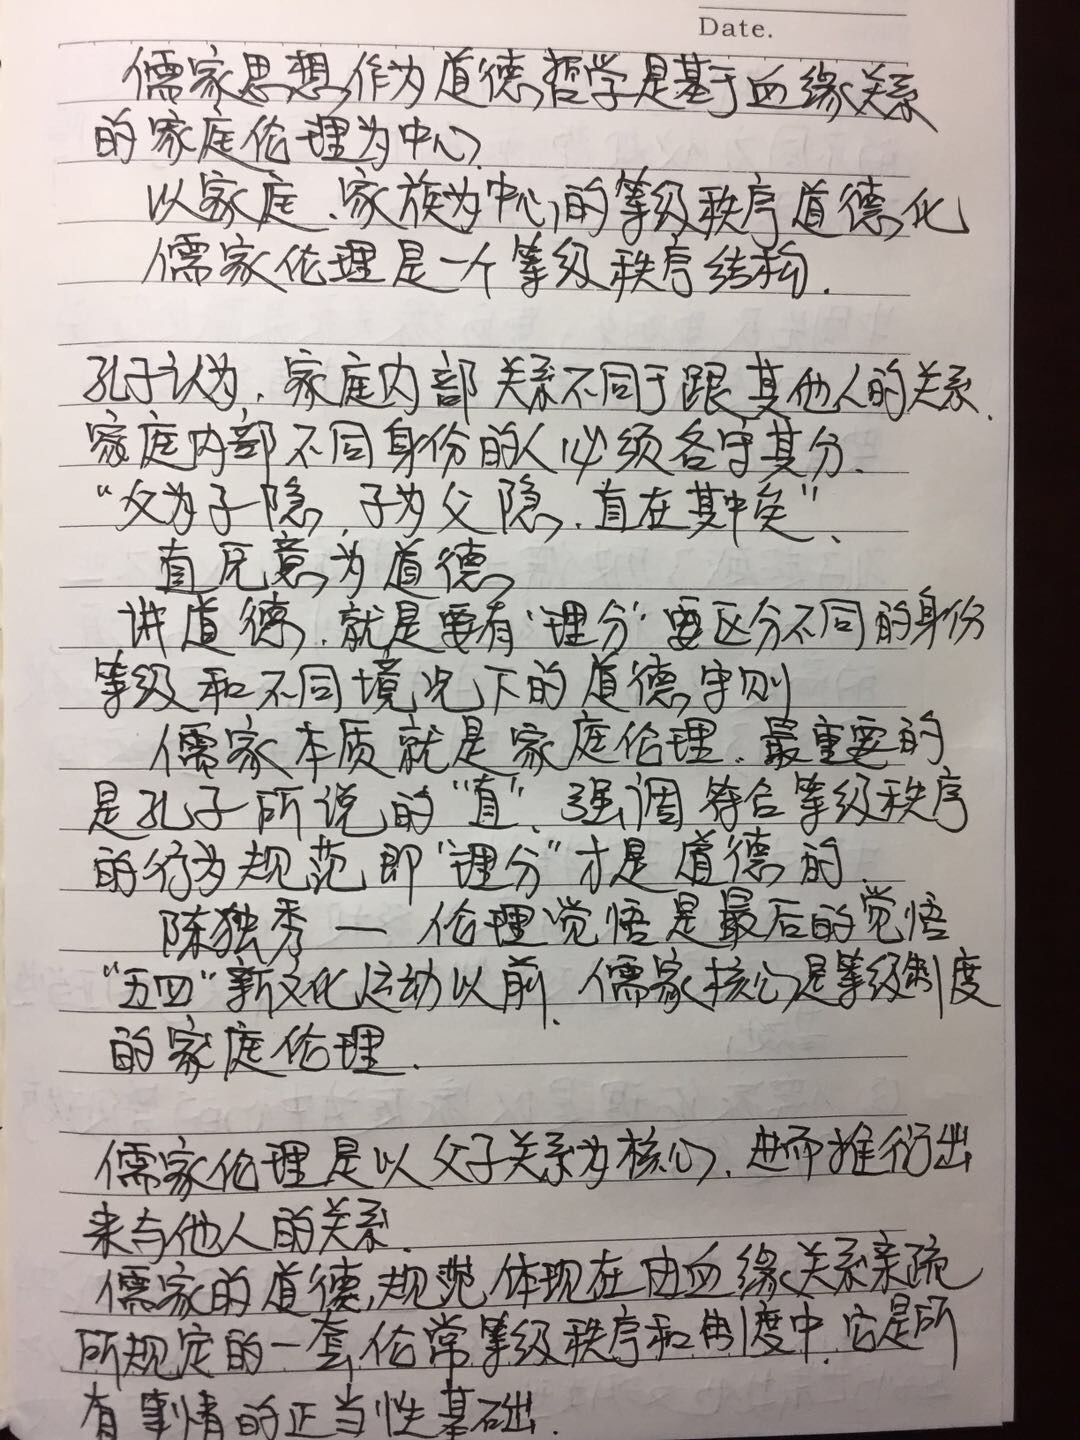 Date.
儒家思想作为道德哲学是基于血缘关系
的家庭伦理为中心
以家庭、家族为中心的等级秩序道德化
儒家伦理是一个等级秩序结构.
孔子认为,家庭内部关系不同于跟其他人的关系.
家庭内部不同身份的人必须各守其分.
“父为子隐,子为父隐,直在其中矣”.
直 意为道德
讲道德,就是要有“理分”要区分不同的身份
等级和不同境况下的道德守则
儒家本质就是家庭伦理.最重要的
是孔子所说的“直”,强调符合等级秩序
的行为规范即“理分”才是道德的.
陈独秀—伦理觉悟是最后的觉悟
“五四”新文化运动以前,儒家核心是等级制度
的家庭伦理.
儒家伦理是以父子关系为核心,进而推衍出
来与他人的关系.
儒家的道德规范体现在由血缘关系亲疏
所规定的一套伦常等级秩序和制度中.它是所
有事情的正当性基础.